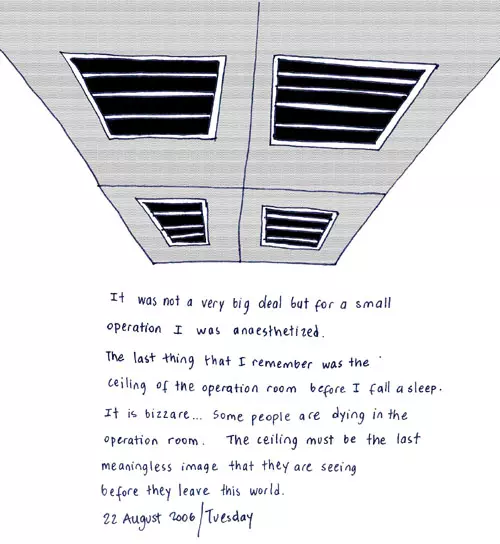 It was not a very big deal but for a small
operation I was anaesthetized.
The last thing that I remember was the
ceiling of the operation room before I fall asleep.
It is bizzare... Some people are dying in the
operation room. The ceiling must be the last
meaningless image that they are seeing
before they leave this world.
22 August 2006/Tuesday